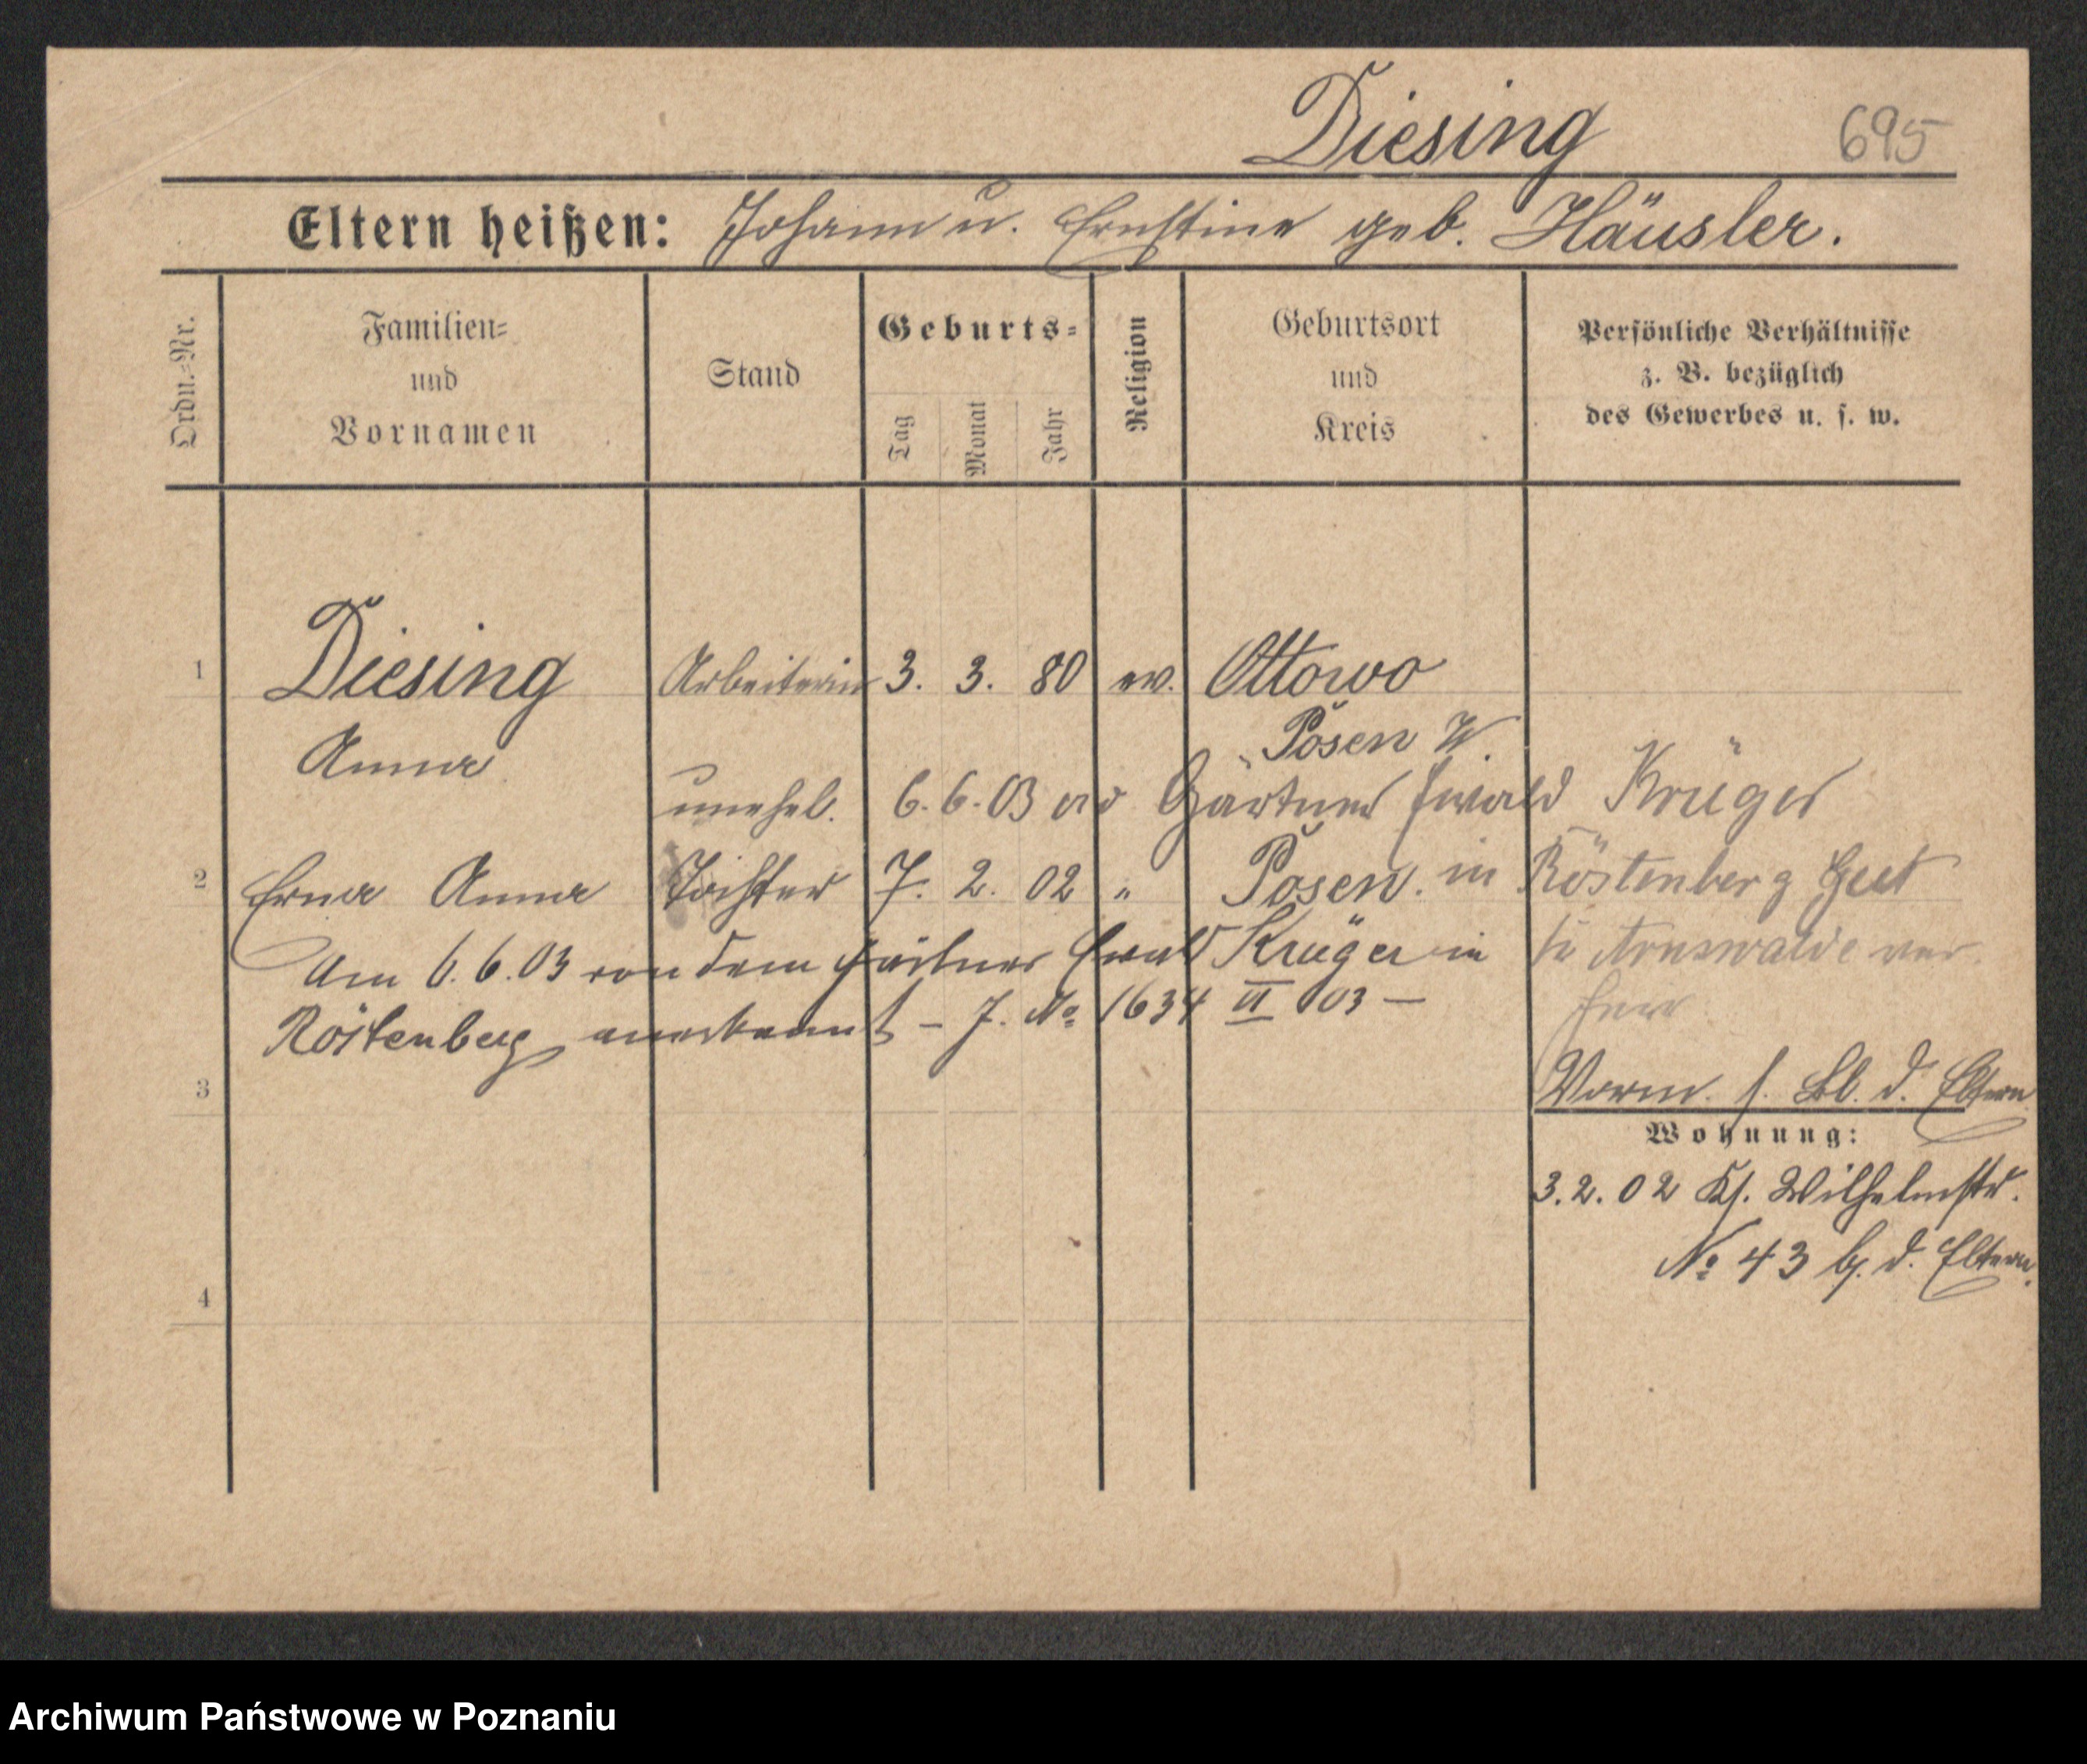 Diesing 695
Eltern heißen: Johann u. Ernstine geb. Häusler.
Ordn.-Nr.
Familien-
und
Vornamen
Stand
Geburts-
Tag
Monat
Jahr
Religion
Geburtsort
und
Kreis
Persönliche Verhältnisse
z. B. bezüglich
des Gewerbes u. s. w.
1 Diesing Arbeiterin 3. 3. 80 ev. Ottowo
Anna Posen W.
unehel. 6. 6. 03 Gärtner Ewald Krüger
2 Erna Anna Tochter 7. 2. 02 " Posen. in Röstenberg
Arnswalde
Am 6.6.03 von dem Gärtner Ewald Krüger in
Röstenberg anerkannt – J. № 1634 II 03 –
3
Vorm. s. Bl. d. Eltern
Wohnung:
3.2.02 Kl. Wilhelmstr.
№ 43 b. d. Eltern.
4
Archiwum Państwowe w Poznaniu